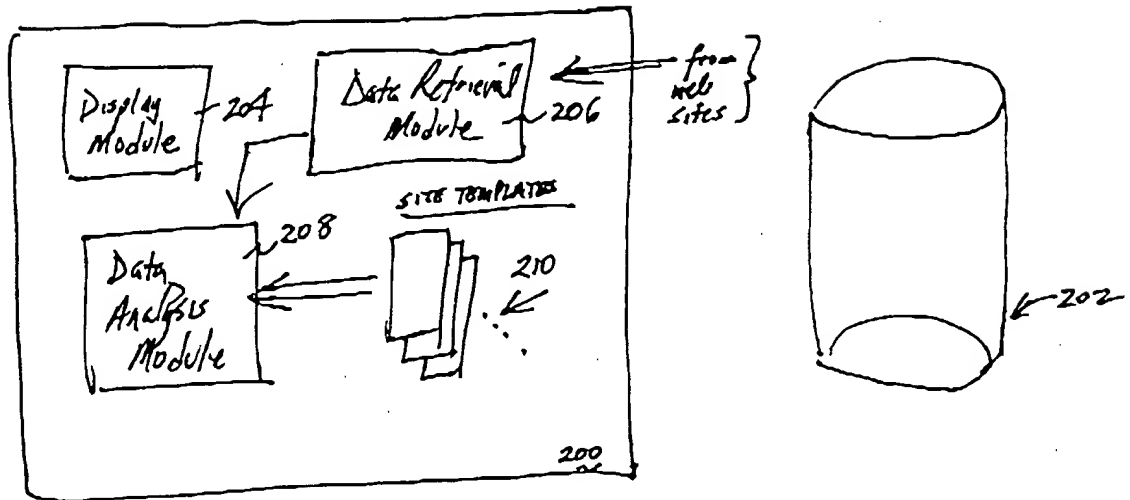 Display
Module
204
Data Retrieval
Module
206
from
web
sites
SITE TEMPLATES
208
Data
Analysis
Module
210
202
200